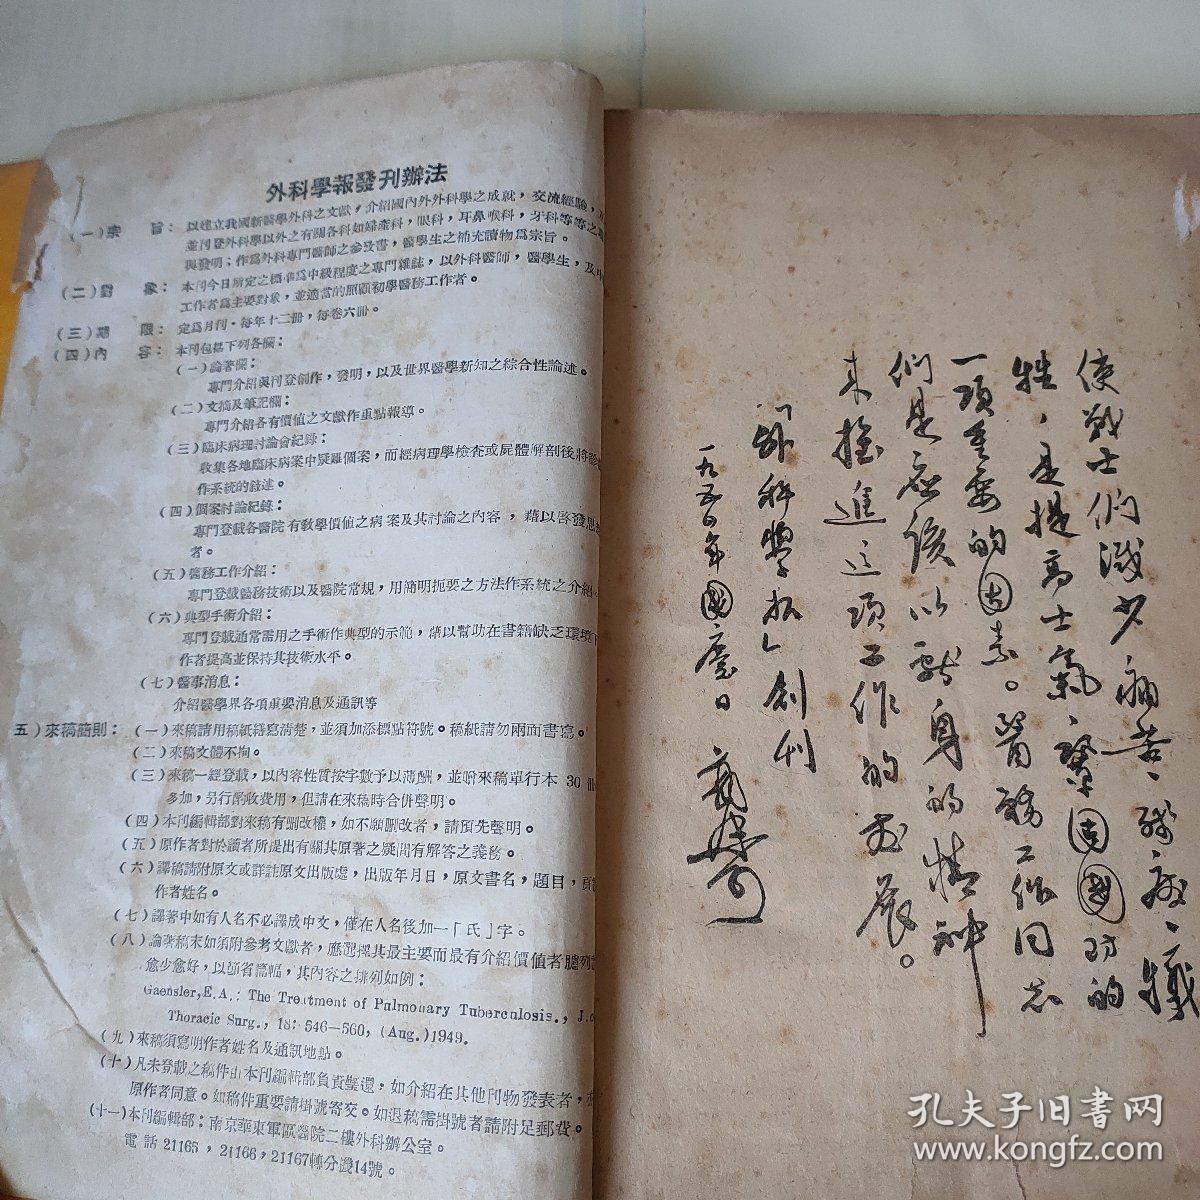 外科學報發刊辦法
(一)宗　旨：以建立我國新醫學外科之文獻，介紹國內外外科學之成就，交流經驗，
並刊登外科學以外之有關各科如婦產科，眼科，耳鼻喉科，牙科等等之
與發明；作爲外科專門醫師之參攷書，醫學生之補充讀物爲宗旨。
(二)對　象：本刊今日所定之標準爲中級程度之專門雜誌，以外科醫師，醫學生，及
工作者爲主要對象，並適當的照顧初學醫務工作者。
(三)期　限：定爲月刊·每年十二冊，每卷六冊。
(四)內　容：本刊包括下列各欄：
(一)論著欄：
專門介紹與刊登創作，發明，以及世界醫學新知之綜合性論述。
(二)文摘及筆記欄：
專門介紹各有價值之文獻作重點報導。
(三)臨床病理討論會紀錄：
收集各地臨床病案中疑難個案，而經病理學檢查或屍體解剖後將診
作系統的敍述。
(四)個案討論紀錄：
專門登載各醫院有敎學價值之病案及其討論之內容，藉以啓發思
者。
(五)醫務工作介紹：
專門登載醫務技術以及醫院常規，用簡明扼要之方法作系統之介紹。
(六)典型手術介紹：
專門登載通常需用之手術作典型的示範，藉以幫助在書籍缺乏環境下
作者提高並保持其技術水平。
(七)醫事消息：
介紹醫學界各項重要消息及通訊等
五)來稿簡則：(一)來稿請用稿紙繕寫淸楚，並須加添標點符號。稿紙請勿兩面書寫。
(二)來稿文體不拘。
(三)來稿一經登載，以內容性質按字數予以薄酬，並贈來稿單行本 30 冊
多加，另行酌收費用，但請在來稿時合併聲明。
(四)本刊編輯部對來稿有刪改權，如不願刪改者，請預先聲明。
(五)原作者對於讀者所提出有關其原著之疑問有解答之義務。
(六)譯稿請附原文或詳註原文出版處，出版年月日，原文書名，題目，頁
作者姓名。
(七)譯著中如有人名不必譯成中文，僅在人名後加一「氏」字。
(八)論著稿末如須附參考文獻者，應選擇其最主要而最有介紹價值者臚列
愈少愈好，以節省篇幅，其內容之排列如例：
Gaensler,E.A.: The Treatment of Pulmonary Tuberculosis., J.
Thoracic Surg., 18: 546—560, (Aug.)1949.
(九)來稿須寫明作者姓名及通訊地點。
(十)凡未登載之稿件由本刊編輯部負責璧還，如介紹在其他刊物發表者，
原作者同意。如稿件重要請掛號寄交。如退稿需掛號者請附足郵費。
(十一)本刊編輯部：南京華東軍區醫院二樓外科辦公室。
電話 21165，21166，21167轉分機14號。
使戰士們減少痛苦、殘廢、犧
牲，是提高士氣、鞏固國防的
一項重要的因素。醫務工作同志
們是應該以獻身的精神
來推進這項工作的發展。
「外科學報」創刊
一九五〇年國慶日
孔夫子旧书网
www.kongfz.com